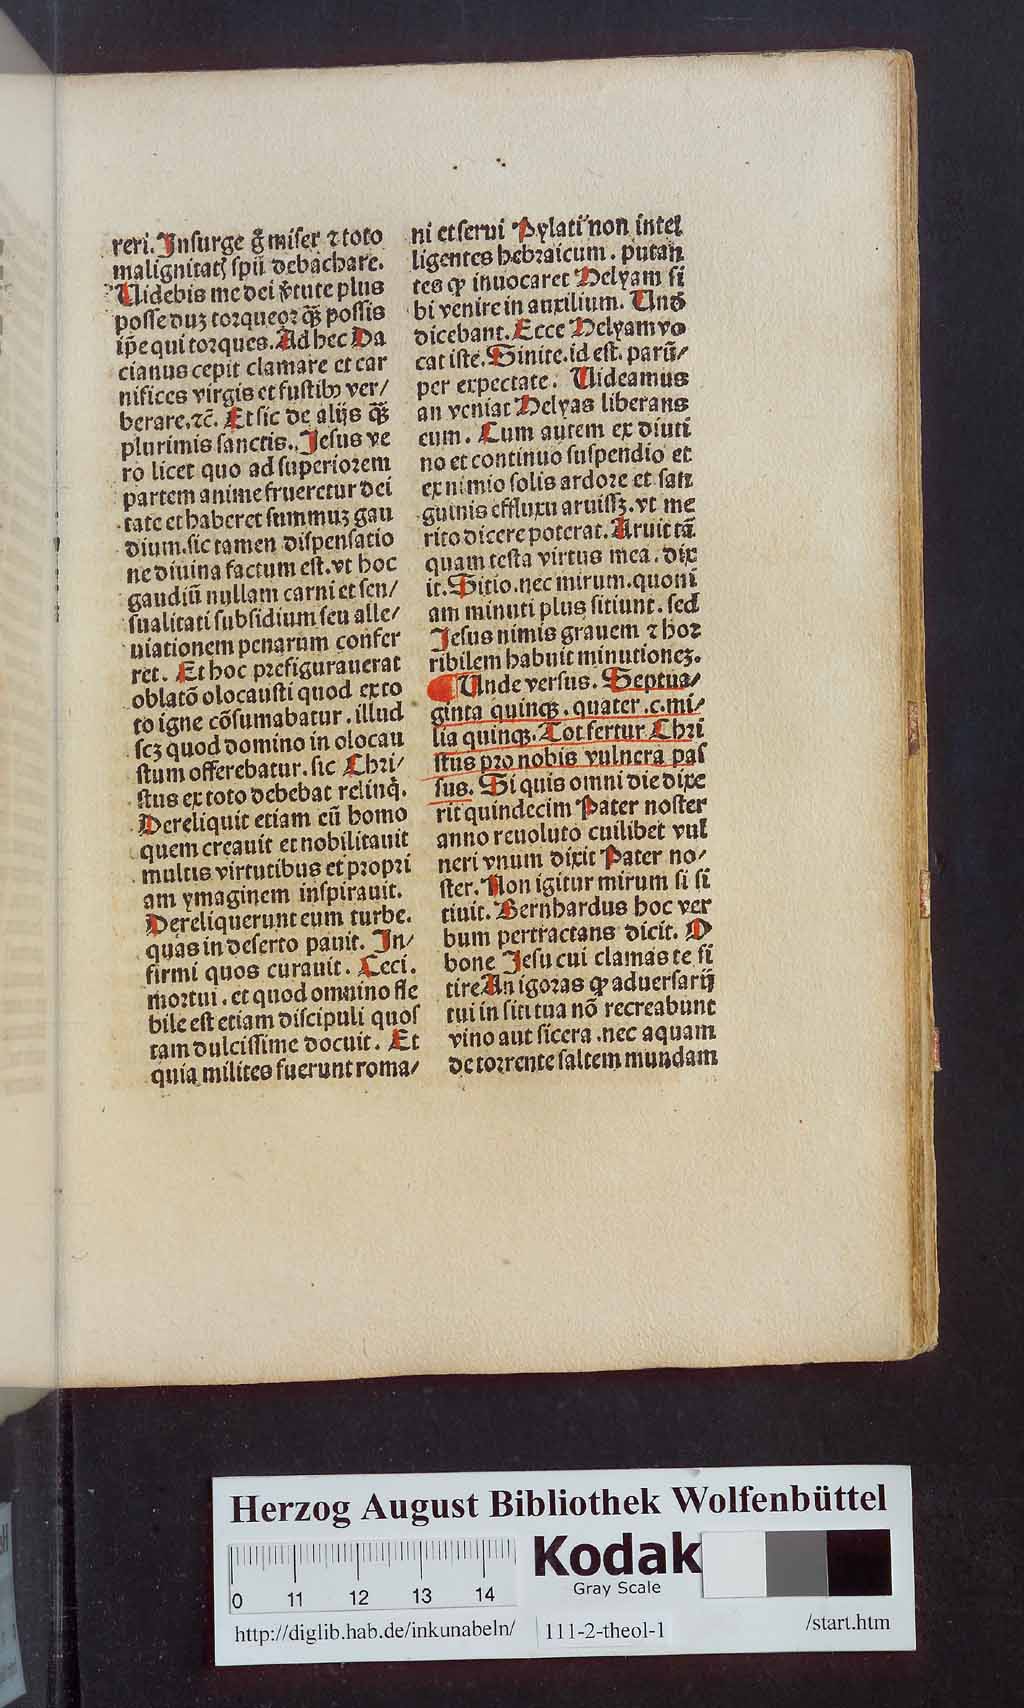 reri. Insurge g̃ miser ⁊ toto
malignitatꝭ spũ debachare.
Uidebis me dei ṽtute plus
posse duꝫ torqueor qꝫ̃ possis
ip̃e qui torques. Ad hec Da
cianus cepit clamare et car
nifices virgis et fustibꝰ ver/
berare. ⁊c̃. Et sic de alijs qꝫ̃
plurimis sanctis. Jesus ve
ro licet quo ad superiorem
partem anime frueretur dei
tate et haberet summuꝫ gau
dium. sic tamen dispensatio
ne diuina factum est. vt hoc
gaudiũ nullam carni et sen/
sualitati subsidium seu alle/
uiationem penarum confer
ret. Et hoc prefigurauerat
oblatõ olocausti quod ex to
to igne cõsumabatur. illud
scꝫ quod domino in olocau
stum offerebatur. sic Chri/
stus ex toto debebat relinq̇.
Dereliquit etiam eũ homo
quem creauit et nobilitauit
multis virtutibus et propri
am ymaginem inspirauit.
Dereliquerunt eum turbe.
quas in deserto pauit. In/
firmi quos curauit. Ceci.
mortui. et quod omnino fle
bile est etiam discipuli quos
tam dulcissime docuit. Et
quia milites fuerunt roma/
ni et serui Pylati non intel
ligentes hebraicum. putan
tes ꝙ inuocaret Helyam si
bi venire in auxilium. Unõ
dicebant. Ecce Helyam vo
cat iste. Sinite. id est. parũ/
per expectate. Uideamus
an veniat Helyas liberans
eum. Cum autem ex diuti
no et continuo suspendio et
ex nimio solis ardore et san
guinis effluxu aruissꝫ. vt me
rito dicere poterat. Aruit tã
quam testa virtus mea. dix
it. Sitio. nec mirum. quoni
am minuti plus sitiunt. sed
Jesus nimis grauem ⁊ hor
ribilem habuit minutioneꝫ.
Unde versus. Septua/
ginta quinqꝫ. quater. c. mi/
lia quinqꝫ. Tot fertur Chri
stus pro nobis vulnera pas
sus. Si quis omni die dixe
rit quindecim Pater noster
anno reuoluto cuilibet vul
neri vnum dixit Pater no/
ster. Non igitur mirum si si
tiuit. Bernhardus hoc ver
bum pertractans dicit. O
bone Jesu cui clamas te si
tire An igoras ꝙ aduersarij
tui in siti tua nõ recreabunt
vino aut sicera. nec aquam
de torrente saltem mundam
Herzog August Bibliothek Wolfenbüttel
Kodak
Gray Scale
0 11 12 13 14
http://diglib.hab.de/inkunabeln/ 111-2-theol-1 /start.htm